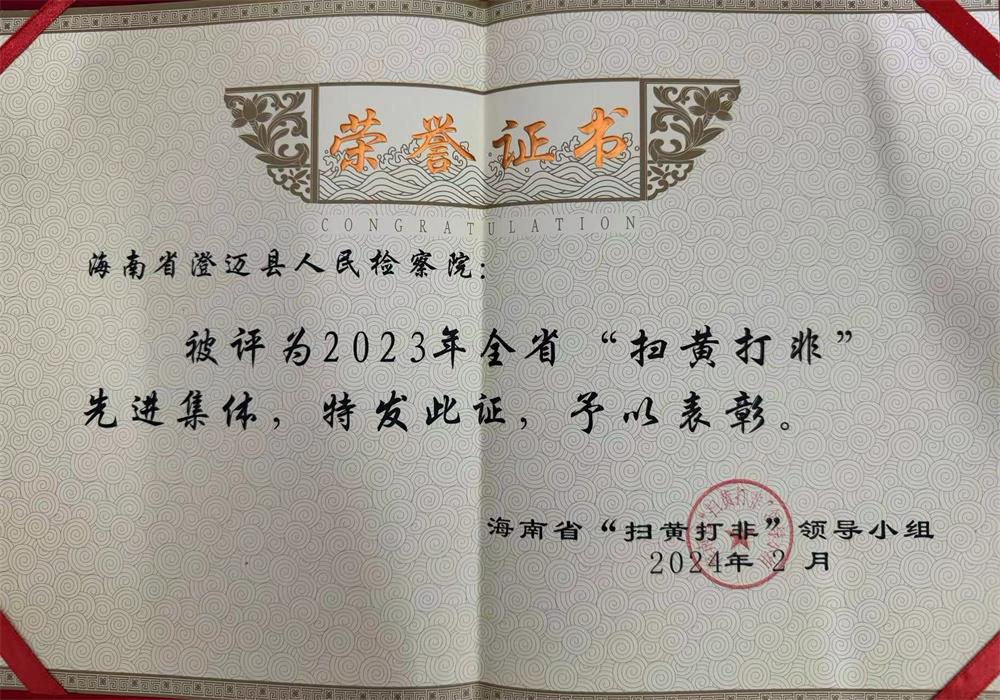 荣誉证书
CONGRATULATION
海南省澄迈县人民检察院：
被评为2023年全省“扫黄打非”
先进集体，特发此证，予以表彰。
海南省“扫黄打非”领导小组
2024年2月